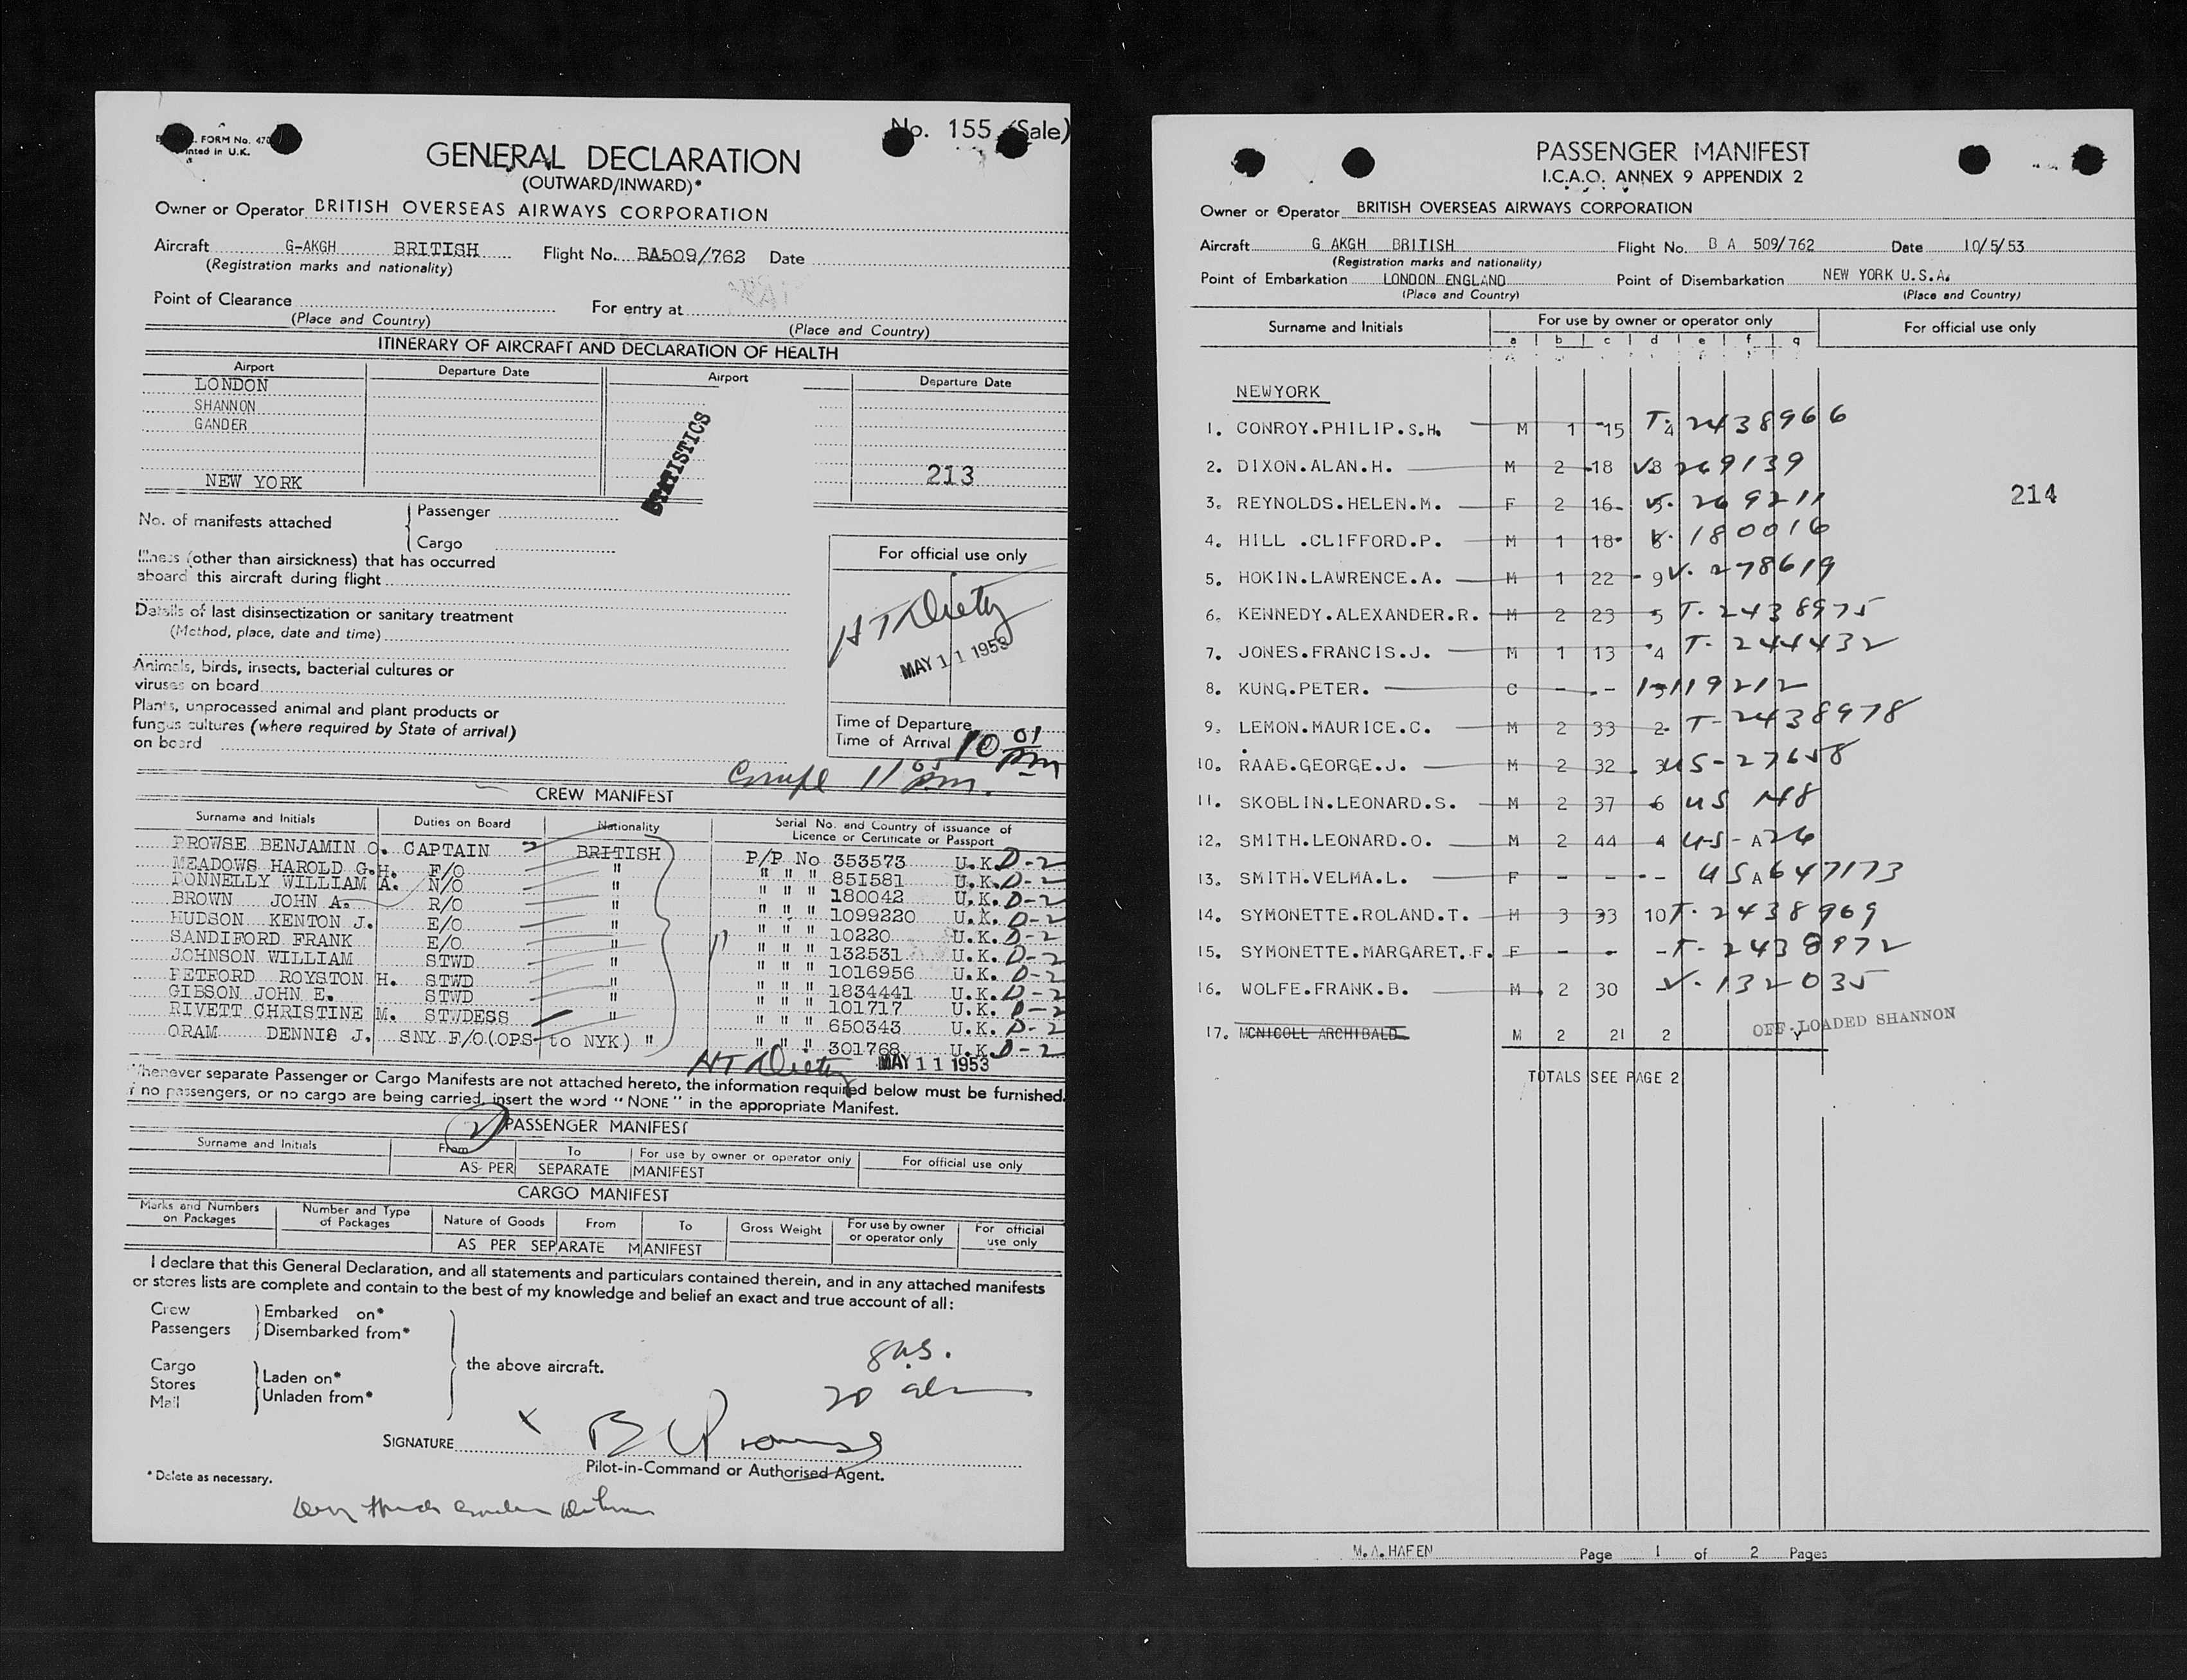 FORM No. 470
Printed in U.K.
No. 155 (Sale)
GENERAL DECLARATION
(OUTWARD/INWARD)*
Owner or Operator BRITISH OVERSEAS AIRWAYS CORPORATION
Aircraft G-AKGH BRITISH Flight No. BA509/762 Date
(Registration marks and nationality)
Point of Clearance For entry at
(Place and Country) (Place and Country)
ITINERARY OF AIRCRAFT AND DECLARATION OF HEALTH
Airport Departure Date Airport Departure Date
LONDON
SHANNON
GANDER
STATISTICS
NEW YORK 213
No. of manifests attached { Passenger
Cargo
Illness (other than airsickness) that has occurred
aboard this aircraft during flight
For official use only
Details of last disinsectization or sanitary treatment
(Method, place, date and time)
MAY 11 1953
Animals, birds, insects, bacterial cultures or
viruses on board
Plants, unprocessed animal and plant products or
fungus cultures (where required by State of arrival)
on board
Time of Departure
Time of Arrival 10 01 pm
11 05 pm.
CREW MANIFEST
Surname and Initials Duties on Board Nationality Serial No. and Country of issuance of Licence or Certificate or Passport
PROWSE BENJAMIN O. CAPTAIN BRITISH P/P No 353573 U.K. D-2
MEADOWS HAROLD G.H. F/O " " " " 851581 U.K. D-2
DONNELLY WILLIAM A. N/O " " " " 180042 U.K. D-2
BROWN JOHN A. R/O " " " " 1099220 U.K. D-2
HUDSON KENTON J. E/O " " " " 10220 U.K. D-2
SANDIFORD FRANK E/O " " " " 132531 U.K. D-2
JOHNSON WILLIAM STWD " " " " 1016956 U.K. D-2
PETFORD ROYSTON H. STWD " " " " 1834441 U.K. D-2
GIBSON JOHN E. STWD " " " " 101717 U.K. D-2
RIVETT CHRISTINE M. STWDESS " " " " 650343 U.K. D-2
ORAM DENNIS J. SNY F/O (OPS to NYK) " " " " 301768 U.K. D-2
MAY 11 1953
Whenever separate Passenger or Cargo Manifests are not attached hereto, the information required below must be furnished.
if no passengers, or no cargo are being carried, insert the word "NONE" in the appropriate Manifest.
2 PASSENGER MANIFEST
Surname and Initials From To For use by owner or operator only For official use only
AS PER SEPARATE MANIFEST
CARGO MANIFEST
Marks and Numbers on Packages Number and Type of Packages Nature of Goods From To Gross Weight For use by owner or operator only For official use only
AS PER SEPARATE MANIFEST
I declare that this General Declaration, and all statements and particulars contained therein, and in any attached manifests
or stores lists are complete and contain to the best of my knowledge and belief an exact and true account of all:
Crew } Embarked on*
Passengers } Disembarked from*
Cargo
Stores } Laden on* the above aircraft.
Mail } Unladen from*
20
SIGNATURE X
Pilot-in-Command or Authorised Agent.
* Delete as necessary.
PASSENGER MANIFEST
I.C.A.O. ANNEX 9 APPENDIX 2
Owner or Operator BRITISH OVERSEAS AIRWAYS CORPORATION
Aircraft G AKGH BRITISH Flight No. B A 509/762 Date 10/5/53
(Registration marks and nationality)
Point of Embarkation LONDON ENGLAND Point of Disembarkation NEW YORK U.S.A.
(Place and Country) (Place and Country)
Surname and Initials For use by owner or operator only For official use only
a b c d e f g
NEWYORK
1. CONROY.PHILIP.S.H. M 1 15 4 T. 2438966
2. DIXON.ALAN.H. M 2 18 8 V 269139
3. REYNOLDS.HELEN.M. F 2 16 5 V. 269211
214
4. HILL .CLIFFORD.P. M 1 18 8 V. 180016
5. HOKIN.LAWRENCE.A. M 1 22 9 V. 278619
6. KENNEDY.ALEXANDER.R. M 2 23 5 T. 2438975
7. JONES.FRANCIS.J. M 1 13 4 T. 244432
8. KUNG.PETER. C - - 119212
9. LEMON.MAURICE.C. M 2 33 2 T-2438978
10. RAAB.GEORGE.J. M 2 32 3 US-27658
11. SKOBLIN.LEONARD.S. M 2 37 6 US 148
12. SMITH.LEONARD.O. M 2 44 4 US-A26
13. SMITH.VELMA.L. F - - - USA647173
14. SYMONETTE.ROLAND.T. M 3 33 10 T. 2438969
15. SYMONETTE.MARGARET.F. F - - - T. 2438972
16. WOLFE.FRANK.B. M 2 30 V. 132035
17. MCNICOLL ARCHIBALD M 2 21 2 Y OFF-LOADED SHANNON
TOTALS SEE PAGE 2
M.A.HAFEN Page 1 of 2 Pages